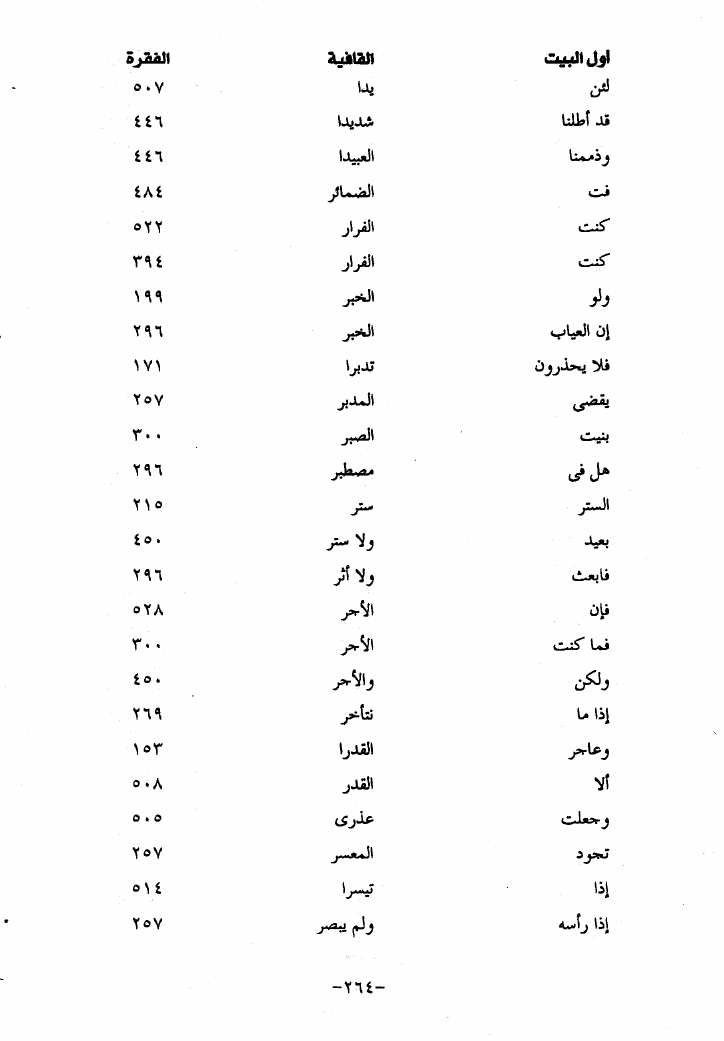 أول البيت القافية الفقرة
لئن يدا ٥٠٧
قد أطلنا شديدا ٤٤٦
وذممنا العبيدا ٤٤٦
فت الضمائر ٤٨٤
كنت الفرار ٥٢٢
كنت الفرار ٣٩٤
ولو الخبر ١٩٩
إن العياب الخبر ٢٩٦
فلا يحذرون تدبرا ١٧١
يقضى المدبر ٢٥٧
بنيت الصبر ٣٠٠
هل فى مصطبر ٢٩٦
الستر ستر ٢١٥
بعيد ولا ستر ٤٥٠
فابعث ولا أثر ٢٩٦
فإن الأجر ٥٢٨
فما كنت الأجر ٣٠٠
ولكن والأجر ٤٥٠
إذا ما نتأخر ٢٦٩
وعاجر القدرا ١٥٣
ألا القدر ٥٠٨
وجعلت عذرى ٥٠٥
تجود المعسر ٢٥٧
إذا تيسرا ٥١٤
إذا رأسه ولم يبصر ٢٥٧
-٢٦٤-